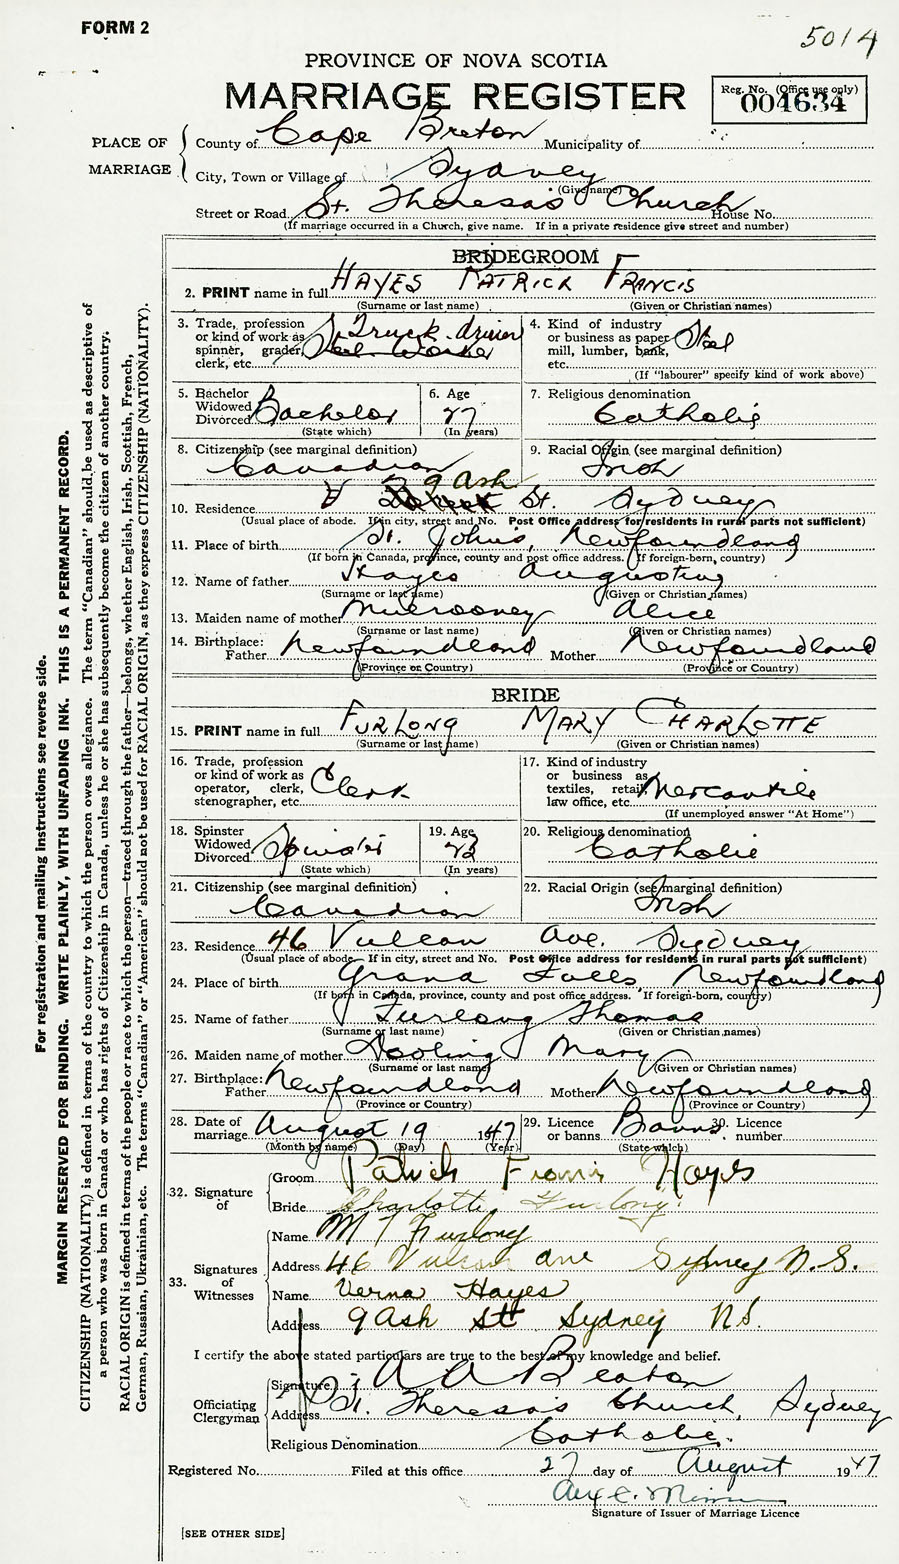 FORM 2
5014
PROVINCE OF NOVA SCOTIA
MARRIAGE REGISTER
Reg. No. (Office use only)
004634
PLACE OF MARRIAGE
County of Cape Breton Municipality of
City, Town or Village of Sydney
(Give name)
Street or Road St. Theresa's Church House No.
(If marriage occurred in a Church, give name. If in a private residence give street and number)
BRIDEGROOM
2. PRINT name in full HAYES PATRICK FRANCIS
(Surname or last name) (Given or Christian names)
3. Trade, profession or kind of work as spinner, grader, clerk, etc. Truck driver
4. Kind of industry or business as paper mill, lumber, bank, etc. Steel
(If "labourer" specify kind of work above)
5. Bachelor Widowed Divorced Bachelor
(State which)
6. Age 27
(In years)
7. Religious denomination Catholic
8. Citizenship (see marginal definition) Canadian
9. Racial Origin (see marginal definition) Irish
10. Residence 9 Ash St. Sydney
(Usual place of abode. If in city, street and No. Post Office address for residents in rural parts not sufficient)
11. Place of birth St. John's, Newfoundland
(If born in Canada, province, county and post office address. If foreign-born, country)
12. Name of father Hayes Augustine
(Surname or last name) (Given or Christian names)
13. Maiden name of mother Mulrooney Alice
(Surname or last name) (Given or Christian names)
14. Birthplace: Father Newfoundland Mother Newfoundland
(Province or Country) (Province or Country)
BRIDE
15. PRINT name in full FURLONG MARY CHARLOTTE
(Surname or last name) (Given or Christian names)
16. Trade, profession or kind of work as operator, clerk, stenographer, etc. Clerk
17. Kind of industry or business as textiles, retail, law office, etc. Mercantile
(If unemployed answer "At Home")
18. Spinster Widowed Divorced Spinster
(State which)
19. Age 23
(In years)
20. Religious denomination Catholic
21. Citizenship (see marginal definition) Canadian
22. Racial Origin (see marginal definition) Irish
23. Residence 46 Vulcan Ave. Sydney
(Usual place of abode. If in city, street and No. Post Office address for residents in rural parts not sufficient)
24. Place of birth Grand Falls, Newfoundland
(If born in Canada, province, county and post office address. If foreign-born, country)
25. Name of father Furlong Thomas
(Surname or last name) (Given or Christian names)
26. Maiden name of mother Dooling Mary
(Surname or last name) (Given or Christian names)
27. Birthplace: Father Newfoundland Mother Newfoundland
(Province or Country) (Province or Country)
28. Date of marriage August 19 1947
(Month by name) (Day) (Year)
29. Licence or banns Banns
(State which)
30. Licence number
32. Signature of
Groom Patrick Francis Hayes
Bride Charlotte Furlong
33. Signatures of Witnesses
Name M T Furlong
Address 46 Vulcan ave Sydney N.S.
Name Verna Hayes
Address 9 Ash St Sydney NS.
I certify the above stated particulars are true to the best of my knowledge and belief.
Officiating Clergyman
Signature A A Beaton
Address St. Theresa's Church, Sydney
Religious Denomination Catholic
Registered No. Filed at this office 27 day of August 1947
Signature of Issuer of Marriage Licence
[SEE OTHER SIDE]
For registration and mailing instructions see reverse side.
MARGIN RESERVED FOR BINDING. WRITE PLAINLY, WITH UNFADING INK. THIS IS A PERMANENT RECORD.
CITIZENSHIP (NATIONALITY) is defined in terms of the country to which the person owes allegiance. The term "Canadian" should be used as descriptive of
a person who was born in Canada or who has rights of Citizenship in Canada, unless he or she has subsequently become the citizen of another country.
RACIAL ORIGIN is defined in terms of the people or race to which the person—traced through the father—belongs, whether English, Irish, Scottish, French,
German, Russian, Ukrainian, etc. The terms "Canadian" or "American" should not be used for RACIAL ORIGIN, as they express CITIZENSHIP (NATIONALITY).